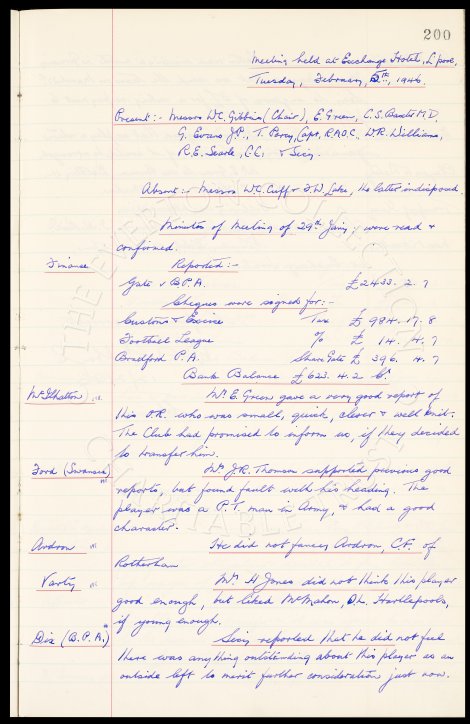 200
Meeting held at Exchange Hotel, L'pool,
Tuesday, February, 5th, 1946.
Present:- Messrs W.C. Gibbins (Chair), E. Green, C.S. Baxter M.D.
G. Evans J.P., T. Percy, Capt. R.A.O.C., W.R. Williams,
R.E. Searle, C.C. & Secy.
Absent:- Messrs W.C. Cuff & F.W. Lake, the latter indisposed.
Minutes of Meeting of 29th Jany, were read &
confirmed.
Finance Reported:-
Gate v B.P.A. £2433. 2. 7
Cheques were signed for:-
Customs & Excise Tax £ 984. 17. 8
Football League % £ 14. 4. 7
Bradford P.A. Share Gate £ 396. 4. 7
Bank Balance £623. 4. 2 Cr.
McIlhatton Mr E. Green gave a very good report of
this O.R. who was small, quick, clever & well knit.
The Club had promised to inform us, if they decided
to transfer him.
Ford (Swansea) Mr J.R. Thomson supported previous good
reports, but found fault with his heading. The
player was a P.T. man in Army, & had a good
character.
Ardron He did not fancy Ardron, C.F. of
Rotherham
Varty Mr H Jones did not think this player
good enough, but liked McMahon, O.L. Hartlepools,
if young enough.
Dix (B.P.A.) Secy reported that he did not feel
there was anything outstanding about this player as an
outside left to merit further consideration just now.
THE EVERTON COLLECTION
CHARITABLE